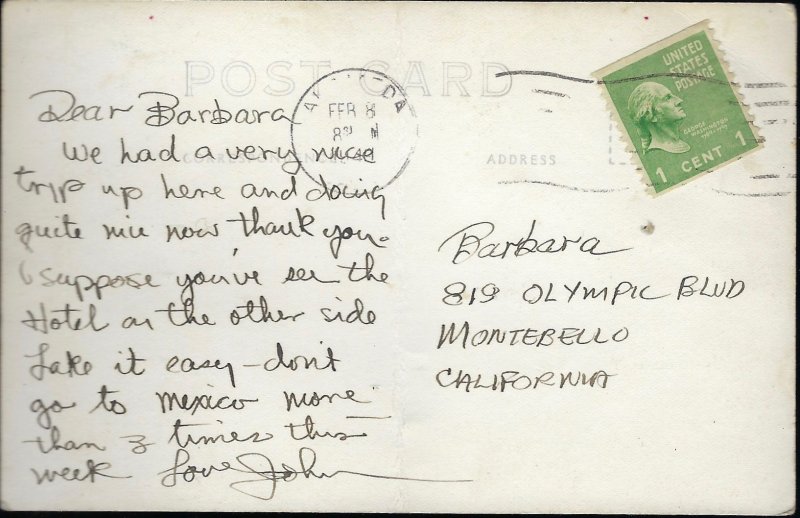 POST CARD
FEB 8
CORRESPONDENCE
ADDRESS
UNITED
STATES
POSTAGE
GEORGE
WASHINGTON
1 CENT 1
Dear Barbara
We had a very nice
trip up here and doing
quite nice now thank you-
I suppose you've see the
Hotel on the other side
Take it easy-don't
go to Mexico more
than 3 times this
week Love John
Barbara
819 OLYMPIC BLVD
MONTEBELLO
CALIFORNIA